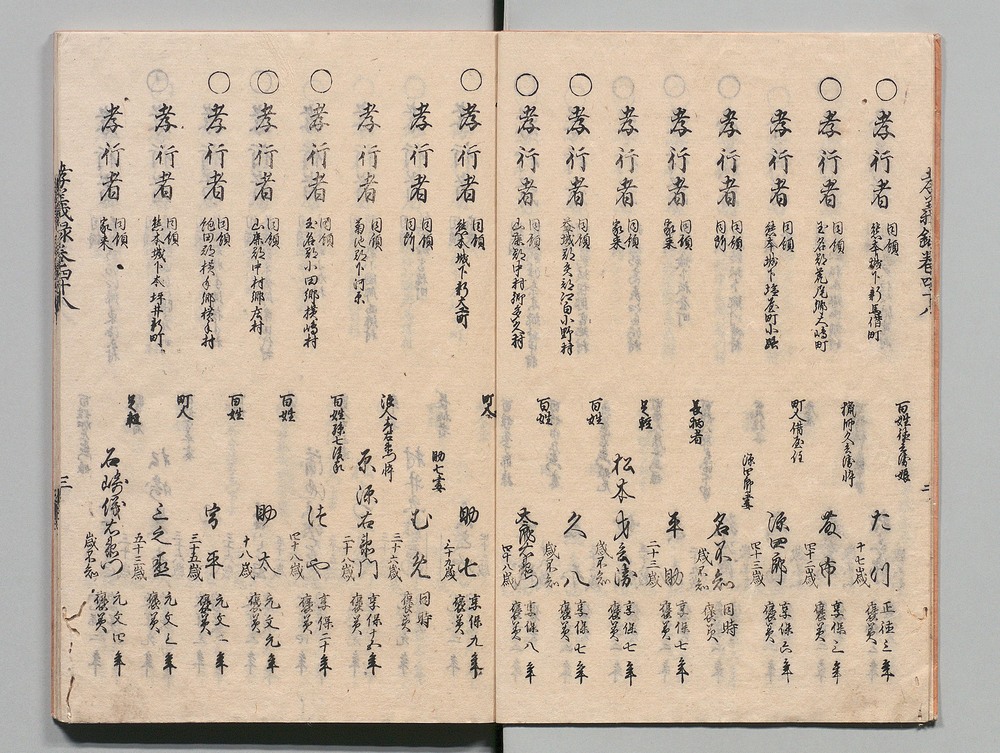 孝義録巻四十八
○孝行者 同領 熊本城下新馬借町 百姓 娘 たつ 十七歳 正徳三年 褒美
○孝行者 同領 玉名郡荒尾郷大嶋町 猟師久兵衛忰 市 四十二歳 享保三年 褒美
孝行者 同領 熊本城下塩屋町小路 町人借屋住 源四郎 四十三歳 享保六年 褒美
○孝行者 同領 同所 源四郎妻 名不知 歳不知 同時 褒美
○孝行者 同領 家来 長柄者 平助 二十三歳 享保七年 褒美
○孝行者 同領 家来 足軽 松本才兵衛 歳不知 享保七年 褒美
○孝行者 同領 益城郡矢部 小野村 百姓 久八 歳不知 享保七年 褒美
○孝行者 同領 山鹿郡中村郷 久村 百姓 四十八歳 享保八年 褒美
○孝行者 同領 熊本城下新大工町 町人 助七 三十九歳 享保九年 褒美
孝行者 同領 同所 助七妻 むめ 三十六歳 同時 褒美
孝行者 同領 菊池郡下河原 浪人 忰 原源右衛門 二十八歳 享保十五年 褒美
○孝行者 同領 玉名郡小田郷横嶋村 百姓孫七後家 つや 四十八歳 享保二十年 褒美
○孝行者 同領 山鹿郡中村郷庄村 百姓 助太 十八歳 元文元年 褒美
○孝行者 同領 飽田郡横手郷横手村 百姓 平 三十五歳 元文二年 褒美
孝行者 同領 熊本城下本坪井新町 町人 三之丞 五十三歳 元文三年 褒美
孝行者 同領 家来 足軽 石崎儀右衛門 歳不知 元文四年 褒美
孝義録巻四十八
三